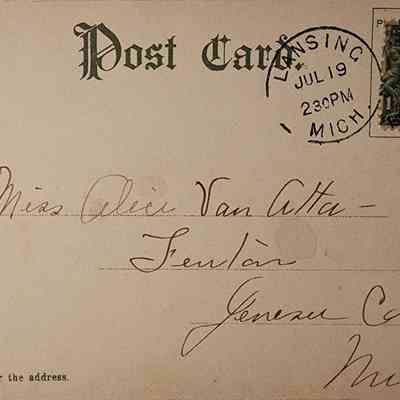 Post Card.
LANSING
JUL 19
230PM
MICH.
Miss Alice Van Atta -
Fenton
Genesee Co
Mi
r the address.